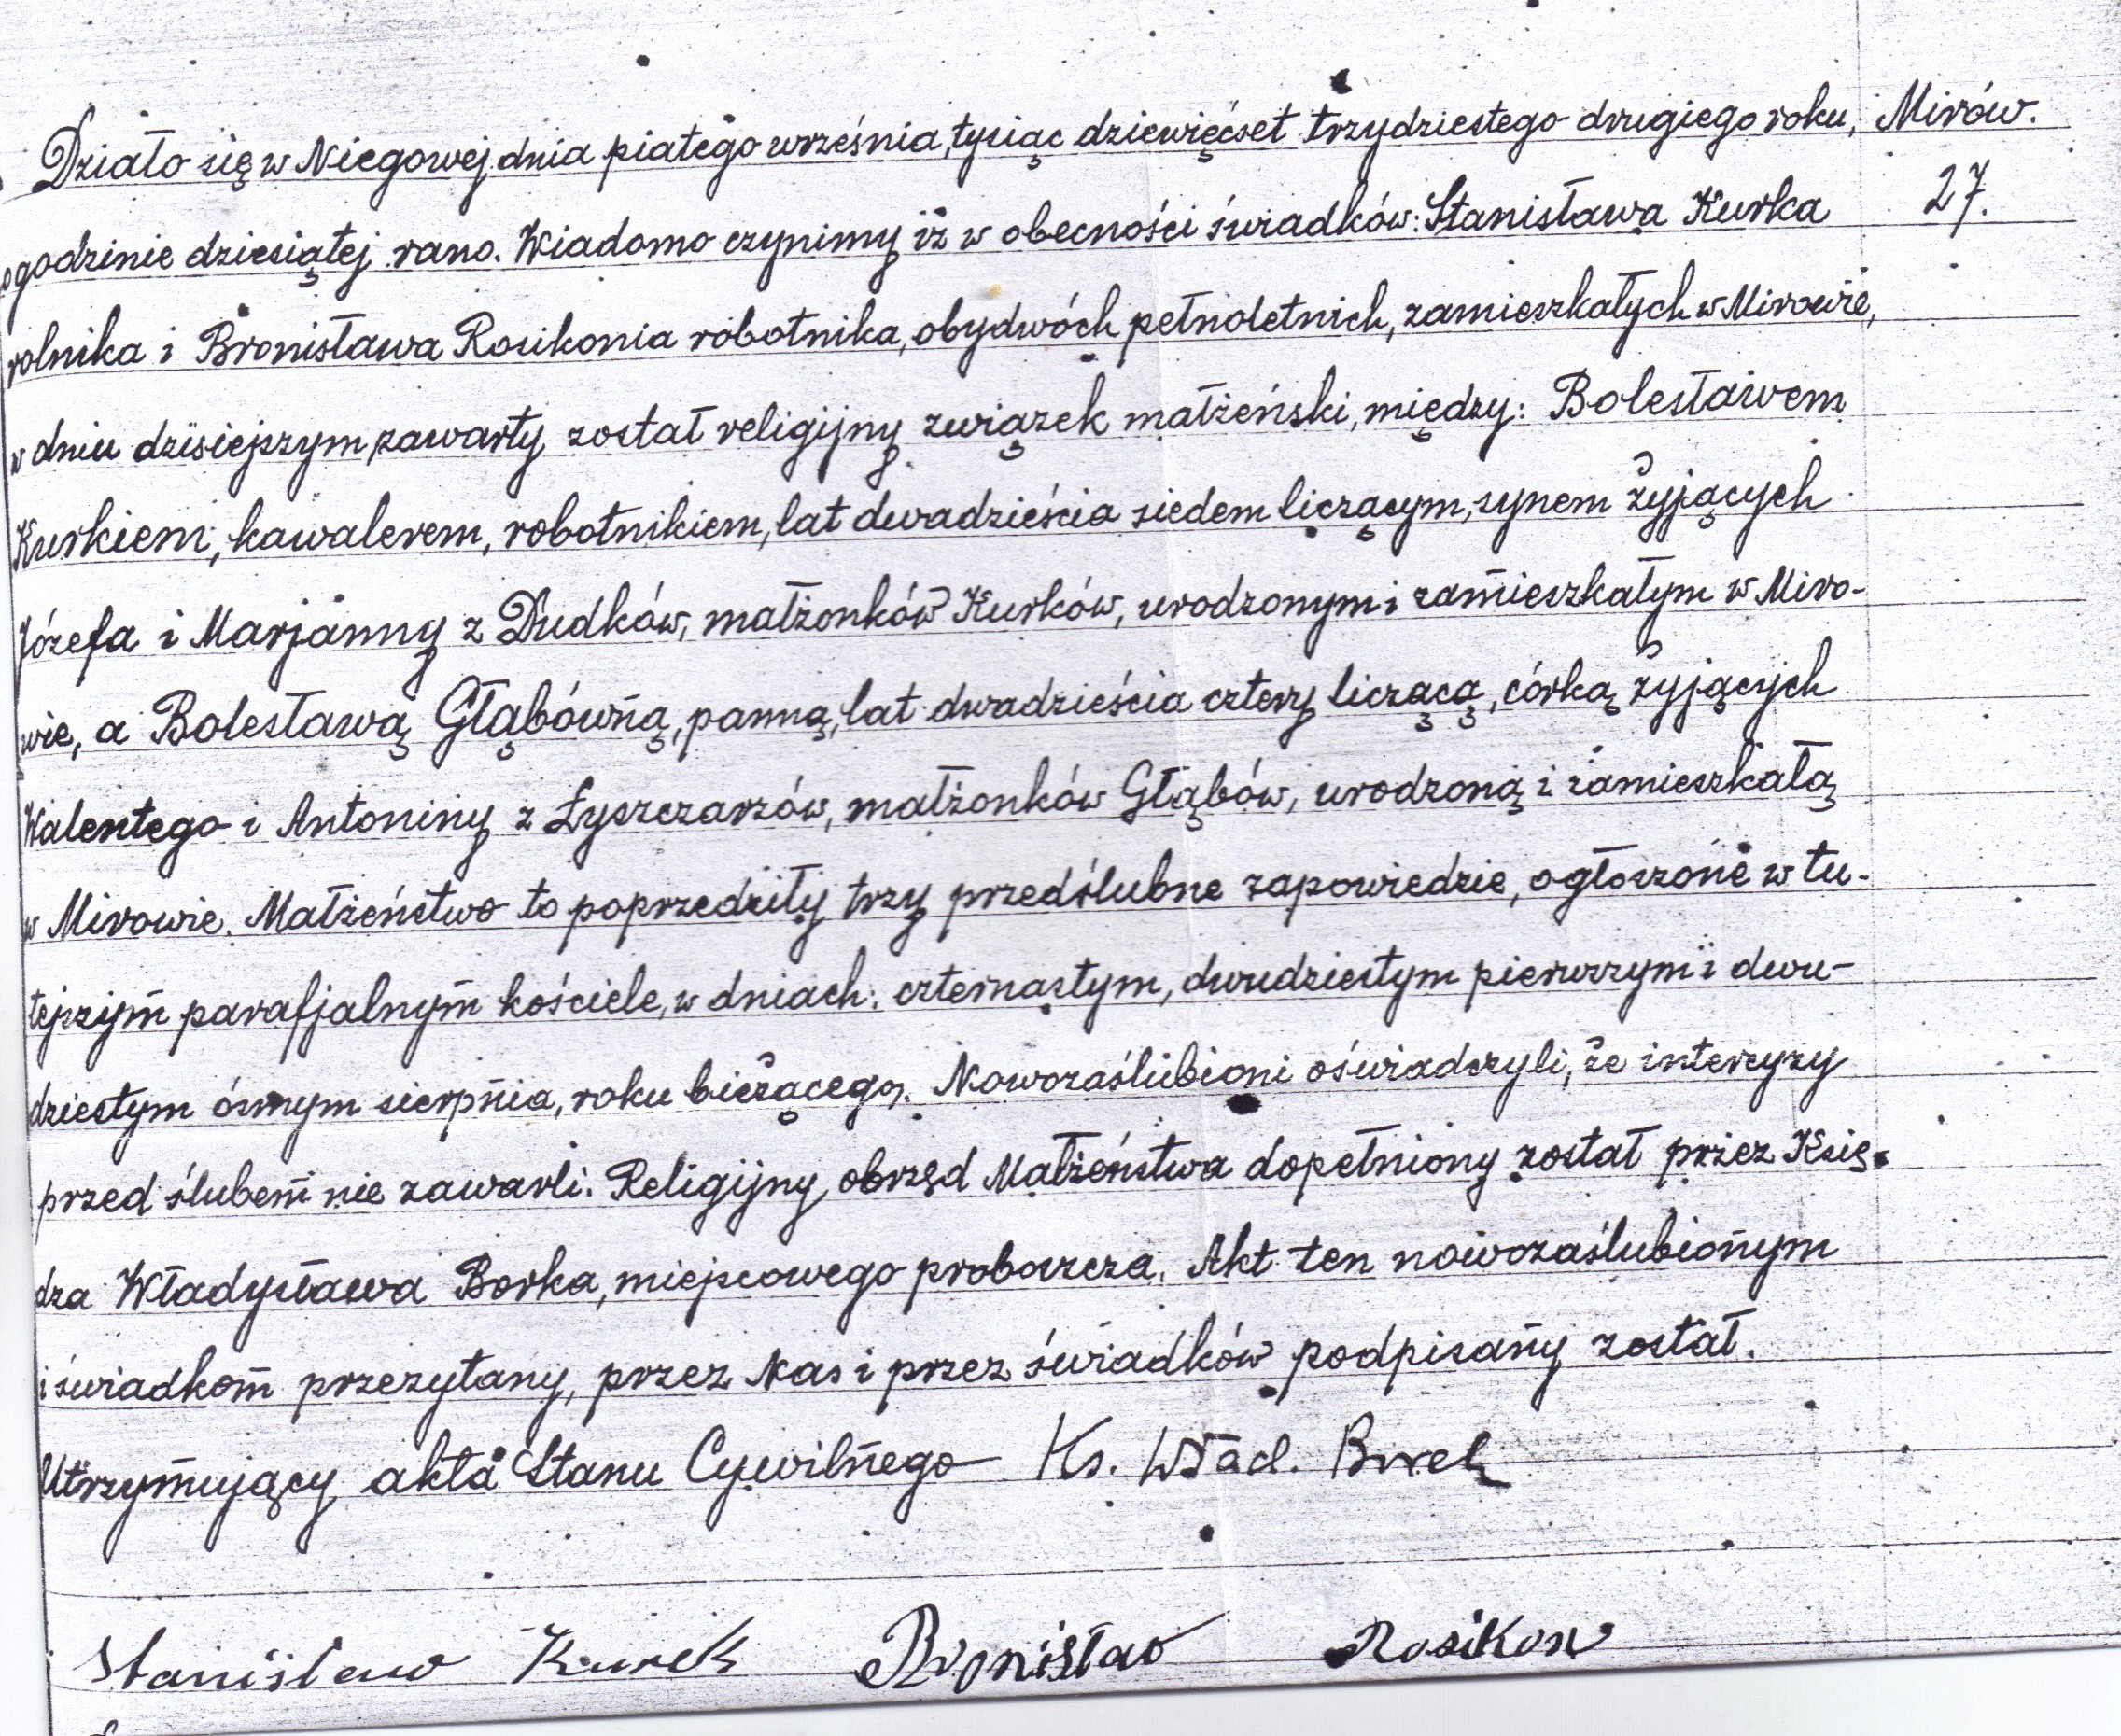 Działo się w Niegowej dnia piątego września, tysiąc dziewięćset trzydziestego drugiego roku, Mirów.
o godzinie dziesiątej rano. Wiadomo czynimy iż w obecności świadków: Stanisława Kurka 27.
rolnika i Bronisława Rosikonia robotnika, obydwóch pełnoletnich, zamieszkałych w Mirowie,
w dniu dzisiejszym zawarty został religijny związek małżeński, między: Bolesławem
Kurkiem, kawalerem, robotnikiem, lat dwadzieścia siedem liczącym, synem żyjących
Józefa i Marjanny z Dudków, małżonków Kurków, urodzonym i zamieszkałym w Miro-
wie, a Bolesławą Głąbówną, panną, lat dwadzieścia cztery liczącą, córką żyjących
Walentego i Antoniny z Łyszczarzów, małżonków Głąbów, urodzoną i zamieszkałą
w Mirowie. Małżeństwo to poprzedziły trzy przedślubne zapowiedzie, ogłoszone w tu-
tejszym parafjalnym kościele, w dniach: czternastym, dwudziestym pierwszym i dwu-
dziestym ósmym sierpnia, roku bieżącego. Nowozaślubieni oświadczyli, że intercyzy
przed ślubem nie zawarli. Religijny obrzęd Małżeństwa dopełniony został przez Księ-
dza Władysława Borka, miejscowego proboszcza. Akt ten nowozaślubionym
i świadkom przeczytany, przez Nas i przez świadków podpisany został.
Utrzymujący akta Stanu Cywilnego Ks. Wład. Borek
Stanisław Kurek Bronisław Rosikon